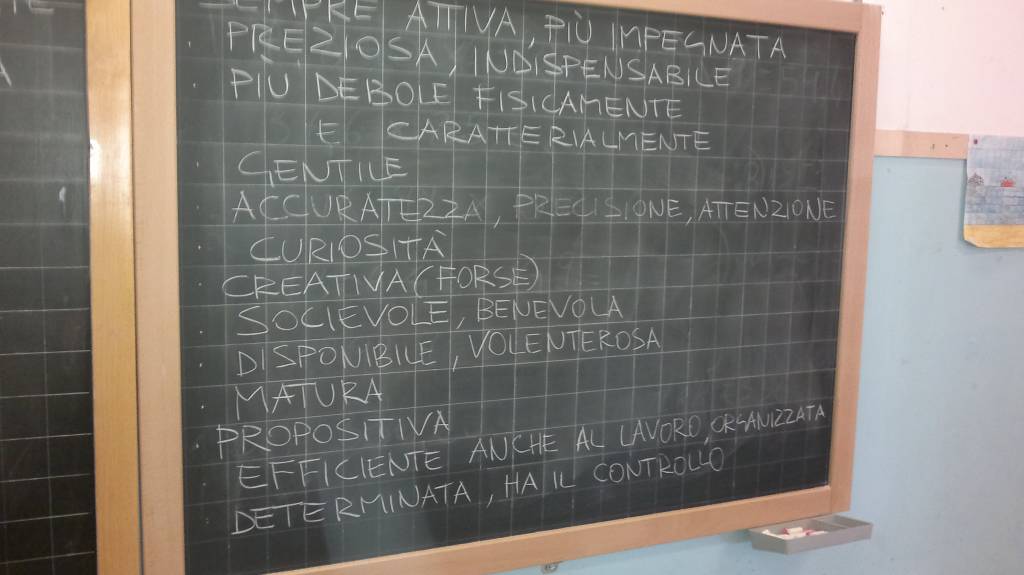 SEMPRE ATTIVA, PIÙ IMPEGNATA
PREZIOSA, INDISPENSABILE
PIÙ DEBOLE FISICAMENTE
E CARATTERIALMENTE
GENTILE
ACCURATEZZA, PRECISIONE, ATTENZIONE
CURIOSITÀ
CREATIVA (FORSE)
SOCIEVOLE, BENEVOLA
DISPONIBILE, VOLENTEROSA
MATURA
PROPOSITIVA
EFFICIENTE ANCHE AL LAVORO, ORGANIZZATA
DETERMINATA, HA IL CONTROLLO